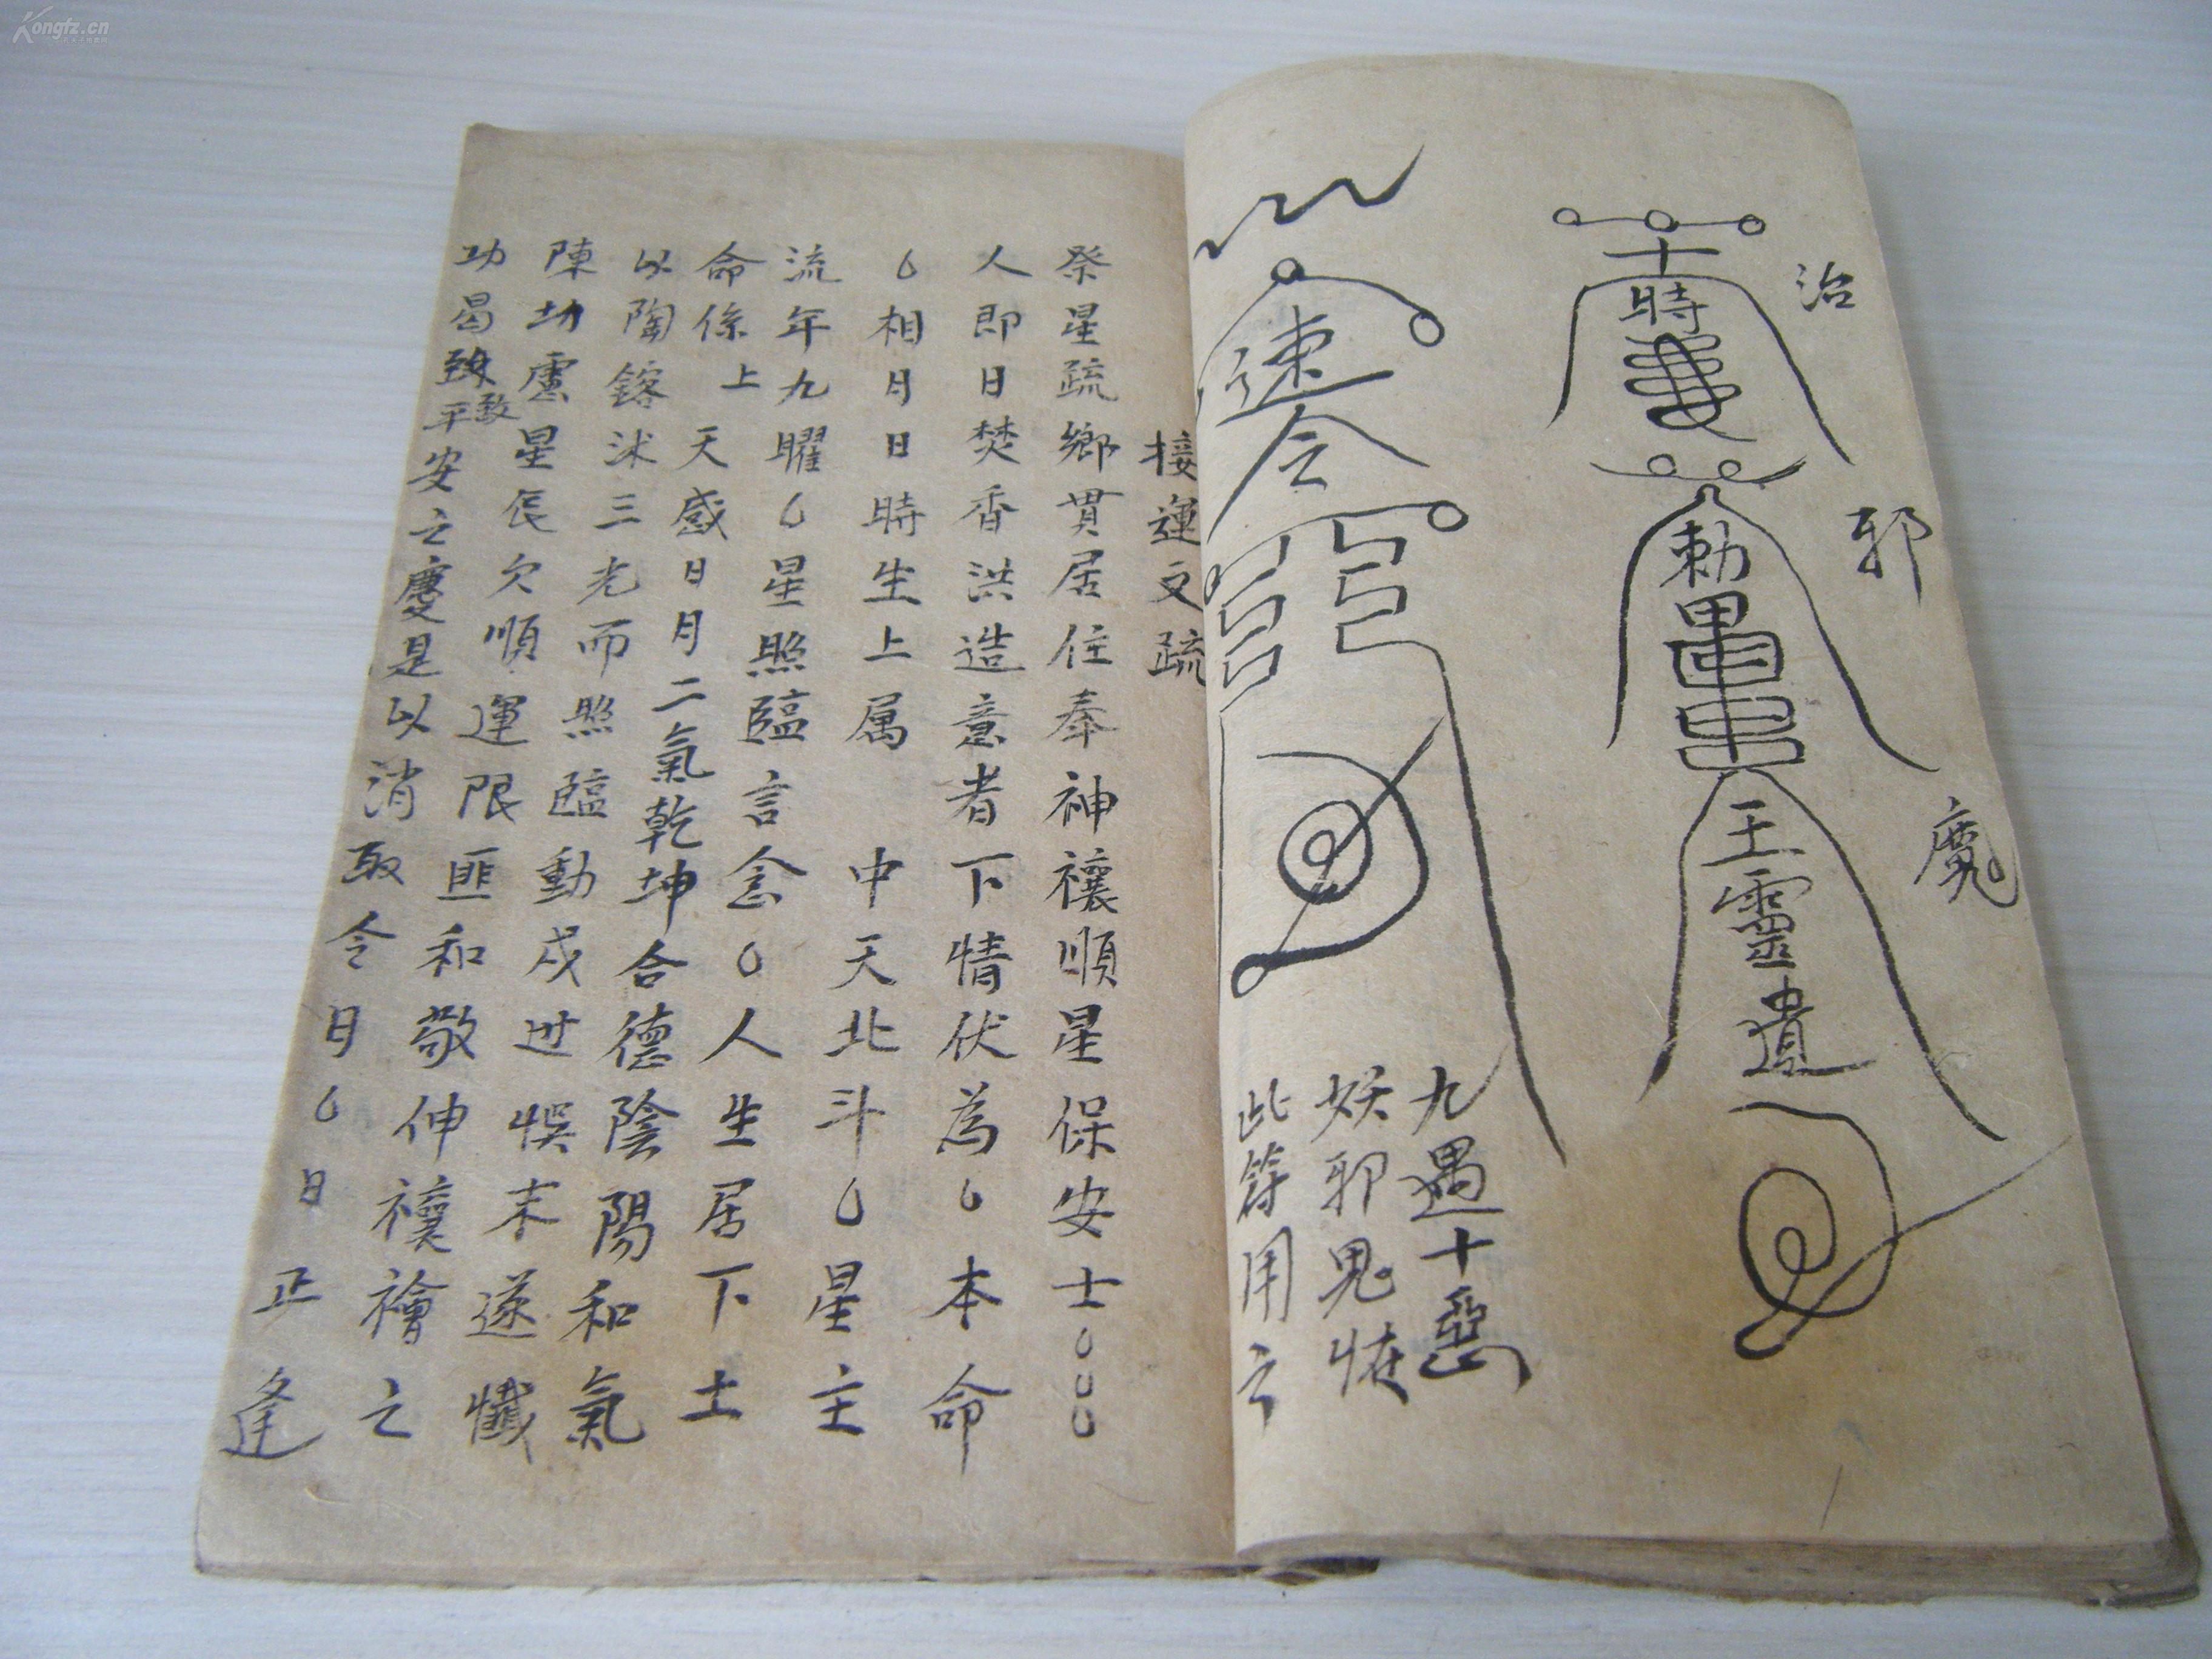 治邪魔
十時
勅
王靈遣
速令
九遇十惡
妖邪鬼怪
此符用之
接運文疏
祭星疏鄉貫居住奉神禳順星保安士
人即日焚香洪造意者下情伏為本命
相月日時生上属中天北斗星主
流年九曜星照臨言念人生居下土
命係上天感日月二氣乾坤合德陰陽和氣
以陶鎔沭三光而照臨動戍世悞末遂懺
陳切慮星辰欠順運限匪和敬伸禳禬之
功曷致平安之慶是以消取令月日正逢
Kongfz.cn